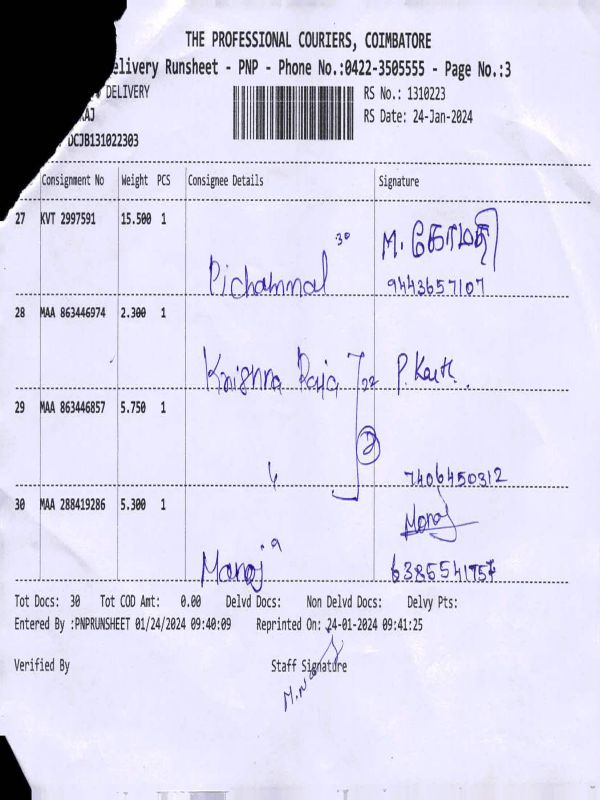 THE PROFESSIONAL COURIERS, COIMBATORE
elivery Runsheet - PNP - Phone No.:0422-3505555 - Page No.:3
DELIVERY
RS No.: 1310223
RAJ
RS Date: 24-Jan-2024
DCJB131022303
Consignment No Weight PCS Consignee Details Signature
27 KVT 2997591 15.500 1
30 M. கோமதி
Pichammal 9443657107
28 MAA 863446974 2.300 1
Krishna Raja 22 P. Karth.
29 MAA 863446857 5.750 1
2
" 7406450312
30 MAA 288419286 5.300 1
Manoj
Manoj 9 6385541757
Tot Docs: 30 Tot COD Amt: 0.00 Delvd Docs: Non Delvd Docs: Delvy Pts:
Entered By :PNPRUNSHEET 01/24/2024 09:40:09 Reprinted On: 24-01-2024 09:41:25
Verified By Staff Signature